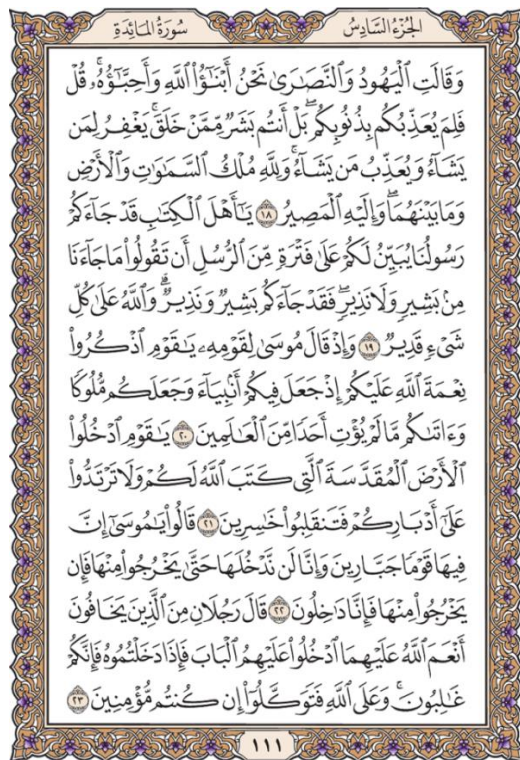 الجزء السادس سورة المائدة
وَقَالَتِ ٱلْيَهُودُ وَٱلنَّصَٰرَىٰ نَحْنُ أَبْنَٰٓؤُا۟ ٱللَّهِ وَأَحِبَّٰٓؤُهُۥ ۚ قُلْ
فَلِمَ يُعَذِّبُكُم بِذُنُوبِكُم ۖ بَلْ أَنتُم بَشَرٌ مِّمَّنْ خَلَقَ ۚ يَغْفِرُ لِمَن
يَشَآءُ وَيُعَذِّبُ مَن يَشَآءُ ۚ وَلِلَّهِ مُلْكُ ٱلسَّمَٰوَٰتِ وَٱلْأَرْضِ
وَمَا بَيْنَهُمَا ۖ وَإِلَيْهِ ٱلْمَصِيرُ ١٨ يَٰٓأَهْلَ ٱلْكِتَٰبِ قَدْ جَآءَكُمْ
رَسُولُنَا يُبَيِّنُ لَكُمْ عَلَىٰ فَتْرَةٍ مِّنَ ٱلرُّسُلِ أَن تَقُولُوا۟ مَا جَآءَنَا
مِنۢ بَشِيرٍ وَلَا نَذِيرٍ ۖ فَقَدْ جَآءَكُم بَشِيرٌ وَنَذِيرٌ ۗ وَٱللَّهُ عَلَىٰ كُلِّ
شَىْءٍ قَدِيرٌ ١٩ وَإِذْ قَالَ مُوسَىٰ لِقَوْمِهِۦ يَٰقَوْمِ ٱذْكُرُوا۟
نِعْمَةَ ٱللَّهِ عَلَيْكُمْ إِذْ جَعَلَ فِيكُمْ أَنۢبِيَآءَ وَجَعَلَكُم مُّلُوكًا
وَءَاتَىٰكُم مَّا لَمْ يُؤْتِ أَحَدًا مِّنَ ٱلْعَٰلَمِينَ ٢٠ يَٰقَوْمِ ٱدْخُلُوا۟
ٱلْأَرْضَ ٱلْمُقَدَّسَةَ ٱلَّتِى كَتَبَ ٱللَّهُ لَكُمْ وَلَا تَرْتَدُّوا۟
عَلَىٰٓ أَدْبَارِكُمْ فَتَنقَلِبُوا۟ خَٰسِرِينَ ٢١ قَالُوا۟ يَٰمُوسَىٰٓ إِنَّ
فِيهَا قَوْمًا جَبَّارِينَ وَإِنَّا لَن نَّدْخُلَهَا حَتَّىٰ يَخْرُجُوا۟ مِنْهَا فَإِن
يَخْرُجُوا۟ مِنْهَا فَإِنَّا دَٰخِلُونَ ٢٢ قَالَ رَجُلَانِ مِنَ ٱلَّذِينَ يَخَافُونَ
أَنْعَمَ ٱللَّهُ عَلَيْهِمَا ٱدْخُلُوا۟ عَلَيْهِمُ ٱلْبَابَ فَإِذَا دَخَلْتُمُوهُ فَإِنَّكُمْ
غَٰلِبُونَ ۚ وَعَلَى ٱللَّهِ فَتَوَكَّلُوٓا۟ إِن كُنتُم مُّؤْمِنِينَ ٢٣
١١١